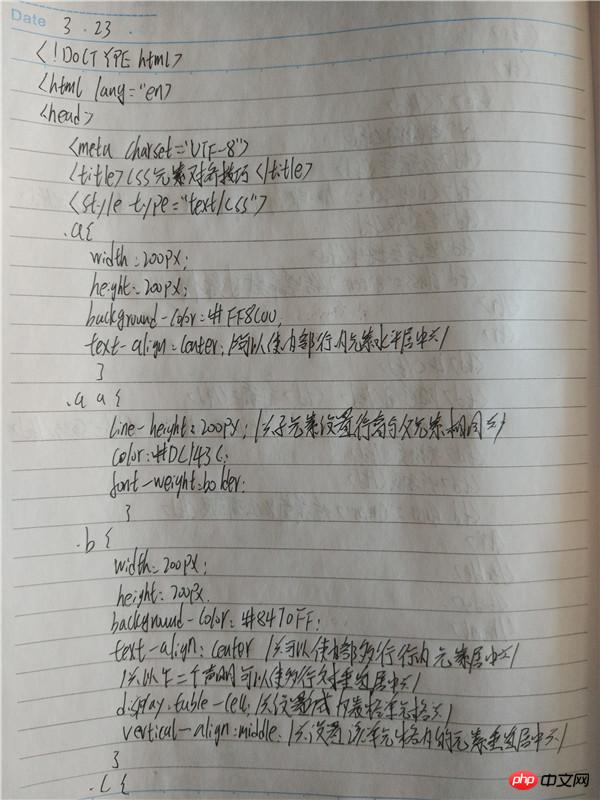 Date 3.23.
<!DOCTYPE html>
<html lang="en>
<head>
<meta charset="UTF-8">
<title>CSS元素对齐技巧</title>
<style type="text/css">
.a{
width:200px;
height:200px;
background-color:#FF8C00;
text-align:center; /*可以使内部行内元素水平居中*/
}
.a a{
line-height:200px; /*子元素设置行高与父元素相同*/
color:#DC143C;
font-weight:bolder;
}
.b{
width:200px;
height:200px.
background-color:#8470FF;
text-align:center /*可以使内部多行行内元素居中*/
/*以下二个声明可以使多行元素垂直居中*/
display:table-cell; /*设置成表格单元格*/
vertical-align:middle. /*设置该单元格内的元素垂直居中*/
}
.c{
php 中文网